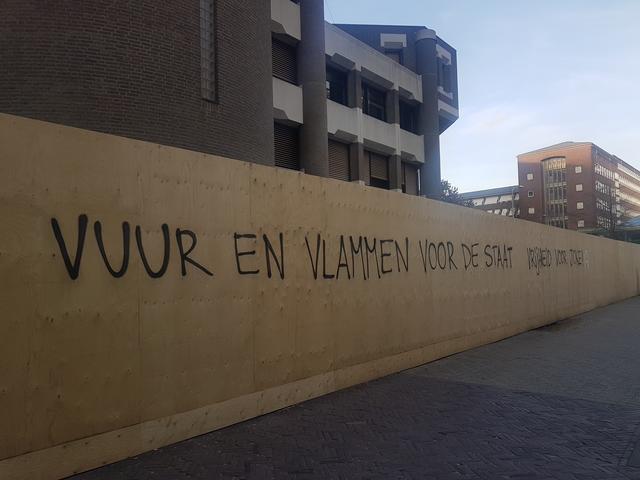 VUUR EN VLAMMEN VOOR DE STAAT VRIJHEID VOOR